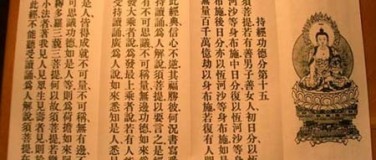 持經功德分第十五
須菩提若有善男子善女人初日分以恆
河沙等身布施中日分復以恆河沙等身
布施後日分亦以恆河沙等身布施如是
無量百千萬億劫以身布施若復有人聞
此經典信心不逆其福勝彼何況書寫受
持讀誦為人解說須菩提以要言之是經
有不可思議不可稱量無邊功德如來為
發大乘者說為發最上乘者說若有人能
受持讀誦廣為人說如來悉知是人悉見
是人皆得成就不可量不可稱無有邊不
可思議功德如是人等則為荷擔如來阿
耨多羅三藐三菩提何以故須菩提若樂
小法者著我見人見眾生見壽者見則於
此經不能聽受讀誦為人解說須菩提